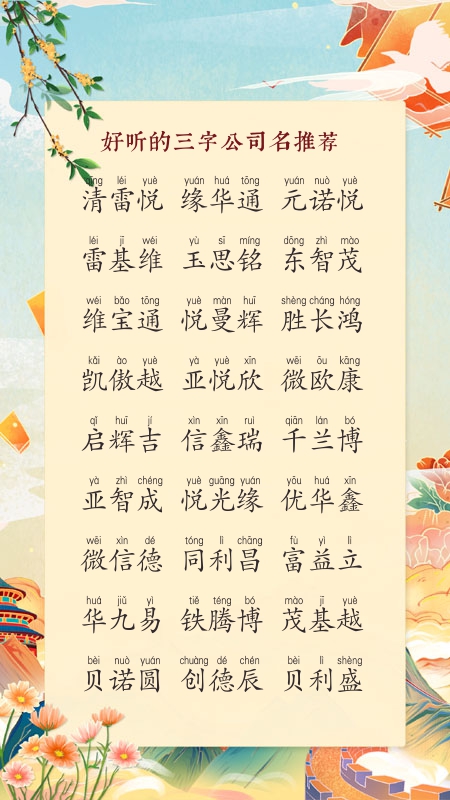 好听的三字公司名推荐
qīng léi yuè yuán huá tōng yuán nuò yuè
清雷悦 缘华通 元诺悦
léi jī wéi yù sī míng dōng zhì mào
雷基维 玉思铭 东智茂
wéi bǎo tōng yuè màn huī shèng cháng hóng
维宝通 悦曼辉 胜长鸿
kǎi ào yuè yà yuè xīn wēi ōu kāng
凯傲越 亚悦欣 微欧康
qǐ huī jí xìn xīn ruì qiān lán bó
启辉吉 信鑫瑞 千兰博
yà zhì chéng yuè guāng yuán yōu huá xīn
亚智成 悦光缘 优华鑫
wēi xìn dé tóng lì chāng fù yì lì
微信德 同利昌 富益立
huá jiǔ yì tiě téng bó mào jī yuè
华九易 铁腾博 茂基越
bèi nuò yuán chuàng dé chén bèi lì shèng
贝诺圆 创德辰 贝利盛